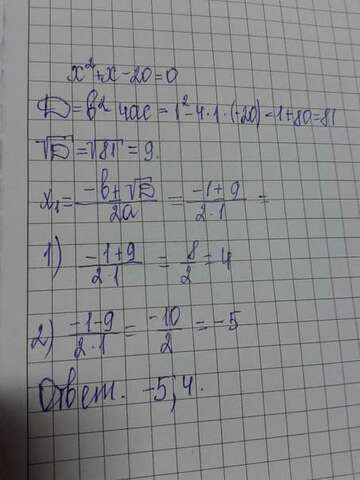 x²+x-20=0
D=b²-4ac=1²-4·1·(-20)=1+80=81
√D=√81=9.
x₁=(-b+√D)/2a=(-1+9)/2·1=
1) (-1+9)/2·1=8/2=4
2) (-1-9)/2·1=-10/2=-5
Ответ. -5;4.